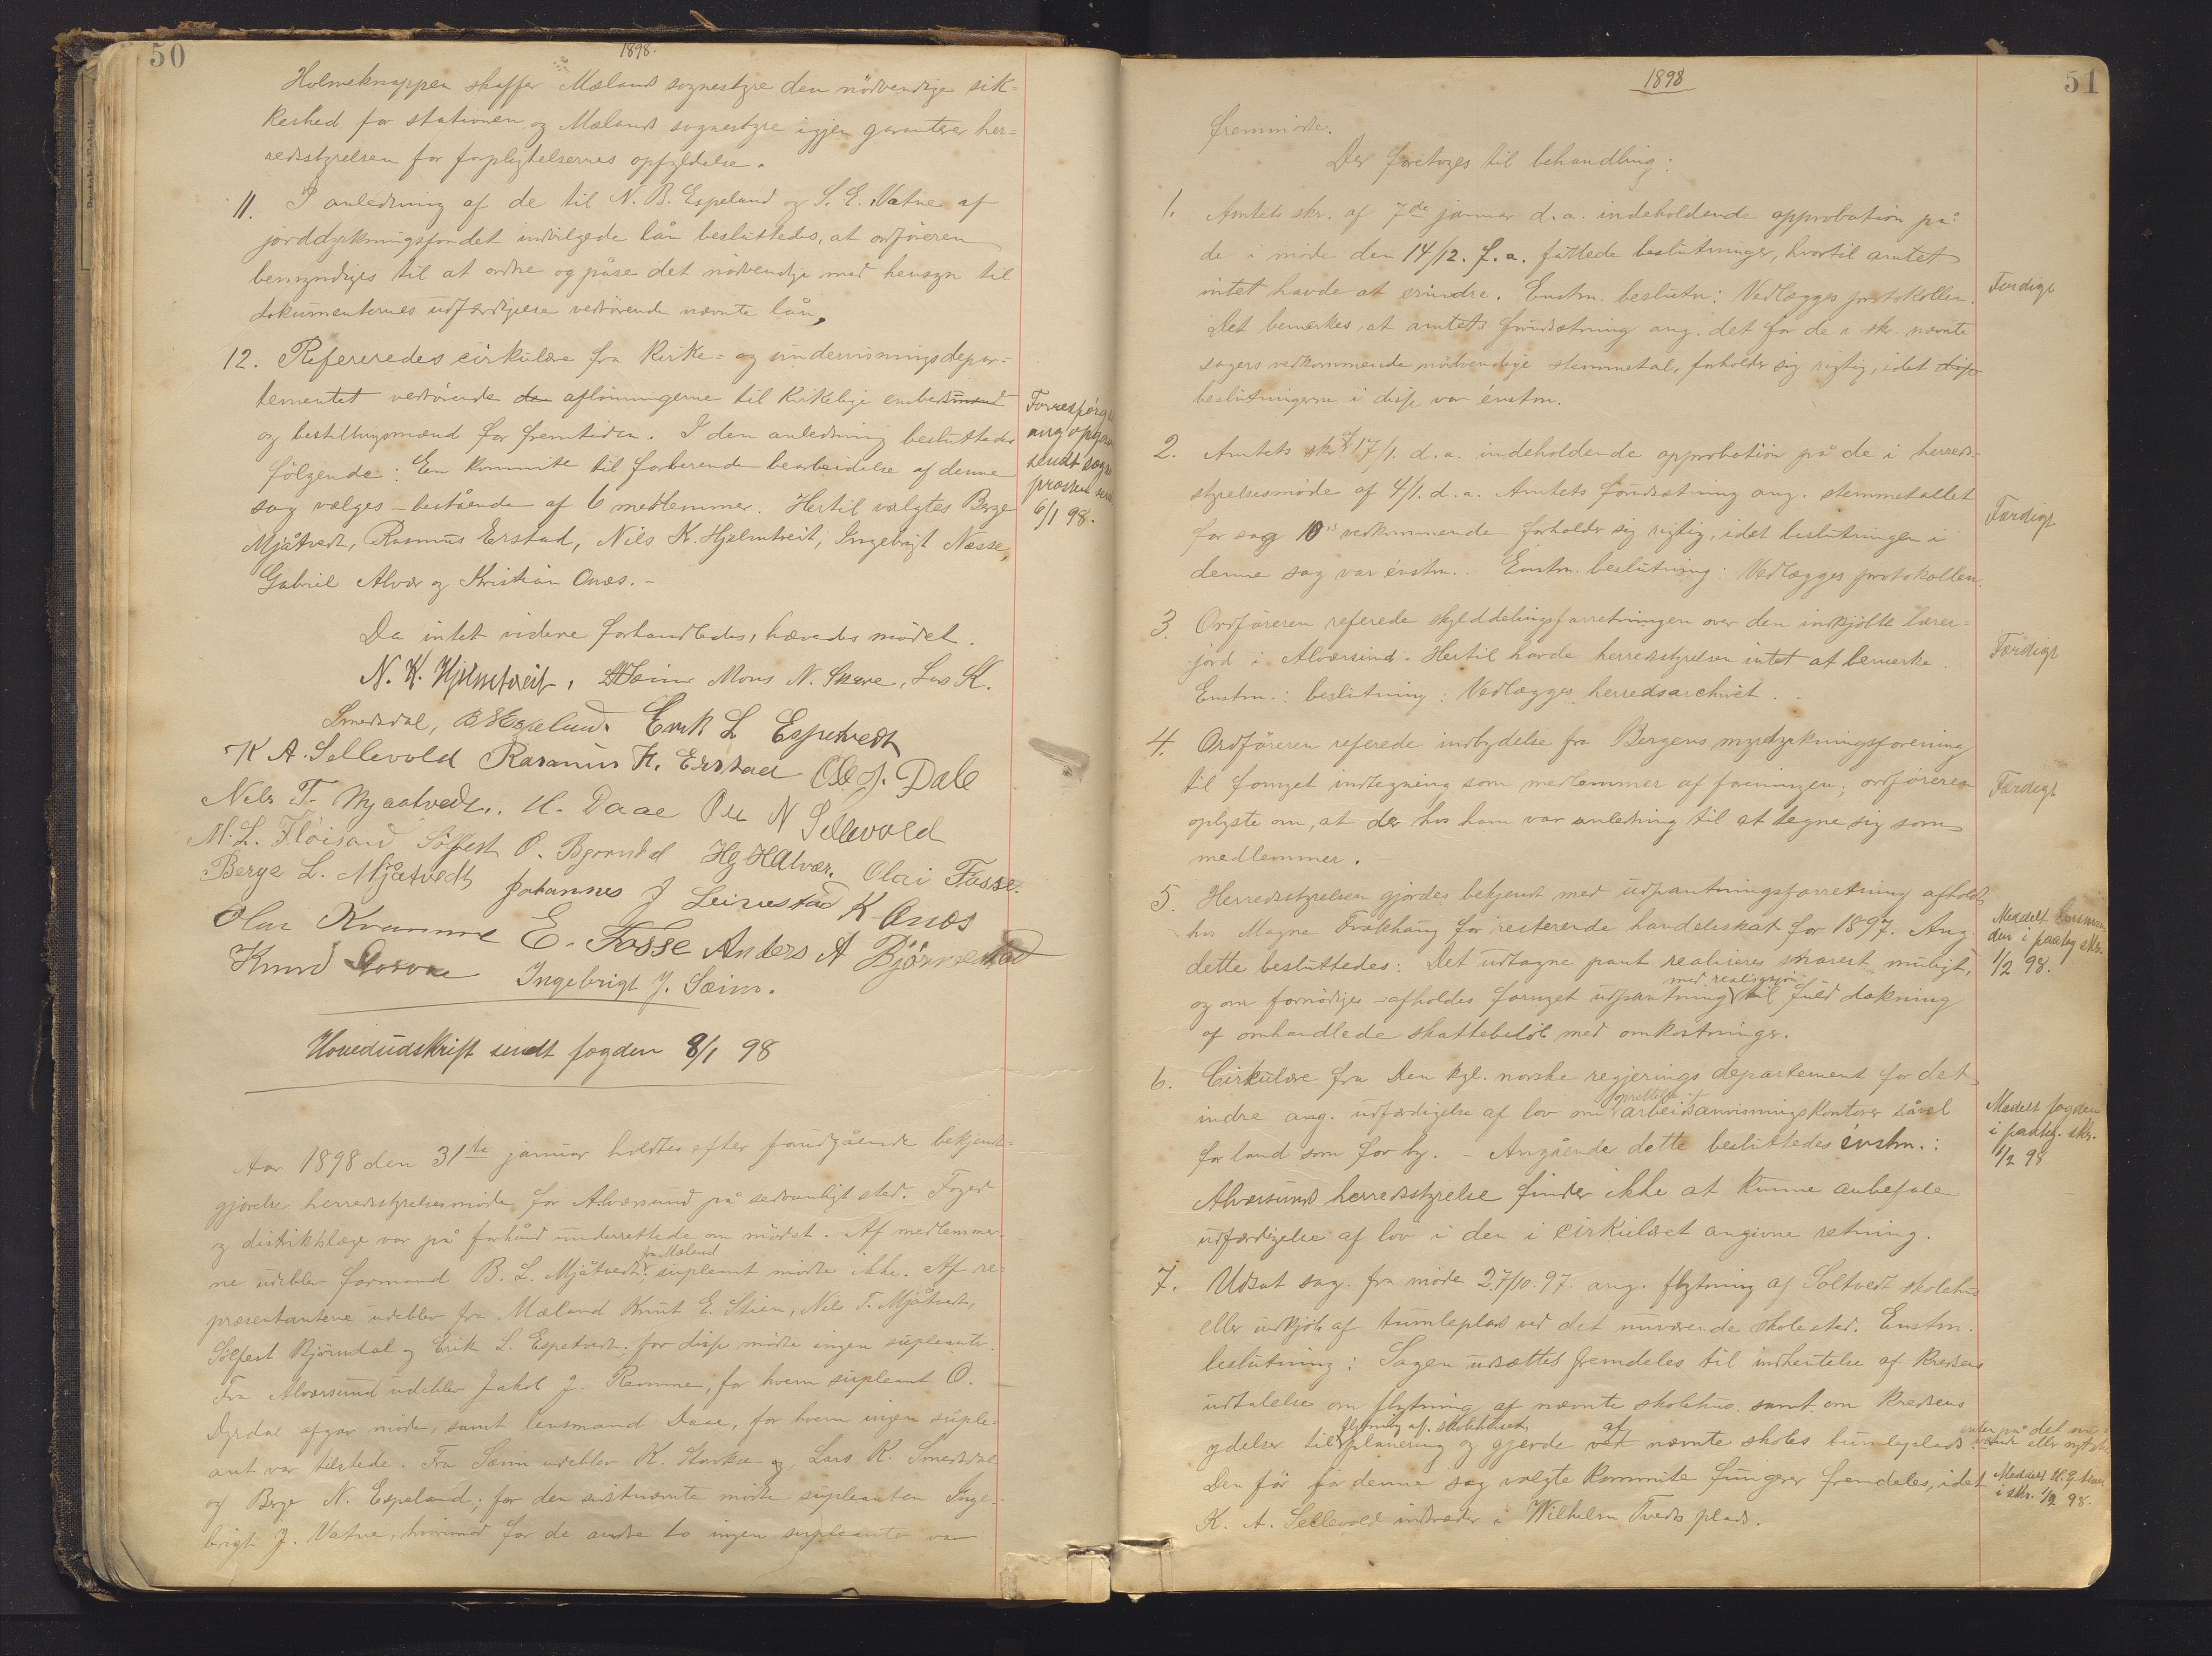 50
1898.
Holmeknappen skaffer Mælands sognestyre den nödvendige sik=
kerhed for stationen og Mælands sognestyre igjen garanterer her=
redsstyrelsen for forpligtelsernes opfyldelse.
11. I anledning af de til N. B. Espeland og S. E. Vatne af
jorddyrkningsfondet indvilgede lån besluttedes, at ordföreren
bemyndiges til at ordne og påse det nödvendige med hensyn til
dokumenternes udfærdigelse vedrörende nævnte lån.
12. Refereredes cirkulære fra Kirke= og undervisningsdepar=
tementet vedrörende den aflönningerne til kirkelige embedsmænd
og bestillingsmænd for fremtiden. I den anledning besluttedes
fölgende: En kommite til forberende bearbeidelse af denne
sag vælges – bestående af 6 medlemmer. Hertil valgtes Berge
Mjåtvedt, Rasmus Erstad, Nils K. Hjelmtveit, Ingebrigt Næsse,
Gabriel Alvær og Kristian Onæs. –
Forespörgs
ang. opgave
sendt sogne
presten
6/1 98.
Da intet videre forhandledes, hævedes mödet.
N. K. Hjelmtveit, Sæim Mons N. Skare, Lars K.
Smedsdal, B N Espeland. Erik L Espetvedt
K A. Sellevold Rasmus H. Erstad Ole J. Dale
Nels T. Myaatvedt, H. Daae Ole N Sellevold
M. L. Flöisand Sölfest O. Bjørndal Hg H Alvær. Olai Fosse.
Berge L. Mjåtvedt Johannes J Leirvestad K Onæs
Olai Kvamme E. Fosse Anders A Björnestad
Knud Ingebrigt J. Sæim.
Hovedudskrift sendt fogden 8/1 98
Aar 1898 den 31te januar holdtes efter forudgående bekjendt=
gjörelse herredsstyrelsesmöde for Alværsund på sedvanligt sted. Foged
og distriktslæge var på forhånd underrettede om mödet. Af medlemmer=
fra Mæland
ne udeblev formand B. L. Mjåtvedt; supleant mödte ikke. Af re=
præsentanterne udeblev fra Mæland Knut E. Stien, Nils T. Mjåtvedt,
Sölfest Björndal og Erik L. Espetvedt; for disse mödte ingen supleante.
Fra Alværsund udeblev Jakob J. Remme, for hvem supleant O.
Dyrdal afgav möde, samt lensmand Daae, for hvem ingen suple=
ant var tilstede. Fra Sæim udeblev K. og Lars K. Smedsdal
og Berge N. Espeland; for den sistnævnte mödte supleanten Inge=
brigt J. Vatne, hvorimod for de andre to ingen supleanter var
51
1898
fremmödte.
Der foretoges til behandling:
1. Amtets skr. af 7de januar d. a. indeholdende approbation på
de i möde den 14/12. f. a. fattede beslutninger, hvortil amtet
intet havde at erindre. Enstm. beslutn: Vedlægges protokollen.
Det bemærkes, at amtets forudsætning ang. det for de i skr. nævnte
sagers vedkommende nödvendige stemmetal, forholder sig rigtig, idet disse
beslutningerne i disse var enstm.
Færdigt
2. Amtets skr. af 17/1. d. a. indeholdende approbation på de i herreds=
styrelsesmöde af 4/1. d. a. Amtets forudsætning ang. stemmetallet
for sag 10's vedkommende forholder sig rigtig, idet beslutningen i
denne sag var enstm. Enstm. beslutning: Vedlægges protokollen.
Færdigt
3. Ordföreren referede skylddelingsforretningen over den indkjöbte lærer=
jord i Alværsund. Hertil havde herredsstyrelsen intet at bemærke.
Enstm.: beslutning: Vedlægges herredsarchivet.
Færdigt
4. Ordföreren referede indbydelse fra Bergens myrdyrkningsforening
til fornyet indtegning som medlemmer af foreningen; ordföreren
oplyste om, at der hos ham var anledning til at tegne sig som
medlemmer. –
Færdigt
5. Herredsstyrelsen gjördes bekjendt med udpantningsforretning afholdt
hos Magne Tvedthaug for resterende handelsskat for 1897. Ang.
dette besluttedes: Det udtagne pant realiseres snarest muligt,
med realisasjon
og om fornödiges – afholdes fornyet udpantning til fuld dækning
af omhandlede skattebelöb med omkostninger.
Meddelt lensman
den i paateg. skr.
1/2 98.
6. Cirkulære fra Den kgl. norske regjerings departement for det
oprettelse
indre ang. udfærdigelse af lov om arbeidsanvisningskontorer såvel
for land som for by. – Angående dette besluttedes enstm.:
Alværsunds herredsstyrelse finder ikke at kunne anbefale
udfærdigelse af lov i den i cirkulæret angivne retning.
Meddelt fogden
i paateg. skr.
1/2 98
7. Udsat sag fra möde 27/10. 97. ang. flytning af Soltvedt skolehus
eller indkjöb af tumleplads ved det nuværende skolested. Enstm.
beslutning: Sagen udsættes fremdeles til indhentelse af kredsens
udtalelse om flytning af nævnte skolehus. samt om kredsens
flytning af skolehuset af enten på det nu=
ydelser til planering og gjerde ved nævnte skoles tumleplads værende eller nyt sted.
Den för for denne sag valgte kommite fungerer fremdeles, idet
K. A. Sellevold indtræder i Wilhelm Tvedts plads.
Meddelt H. G. Alvær
i skr. 1/2 98.